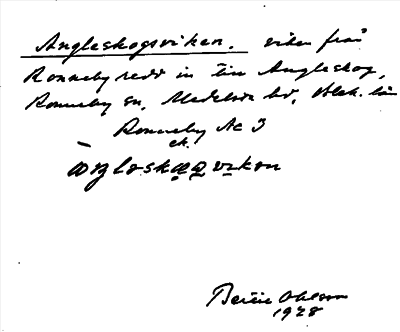 Angleskogsviken. viken från
Ronneby redd in till Angleskog,
Ronneby sn, Medelsta hd, Blek. län
Ronneby Æ 3
ek.
Bertil Ohlsson
1928